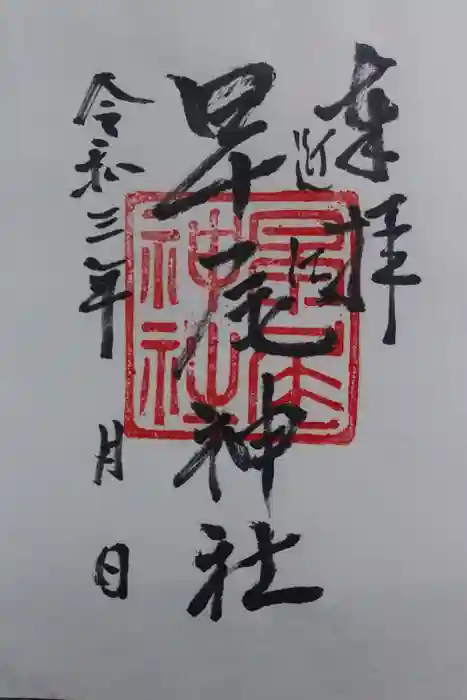 奉拝
近
早尾神社
神社
令和三年 月 日